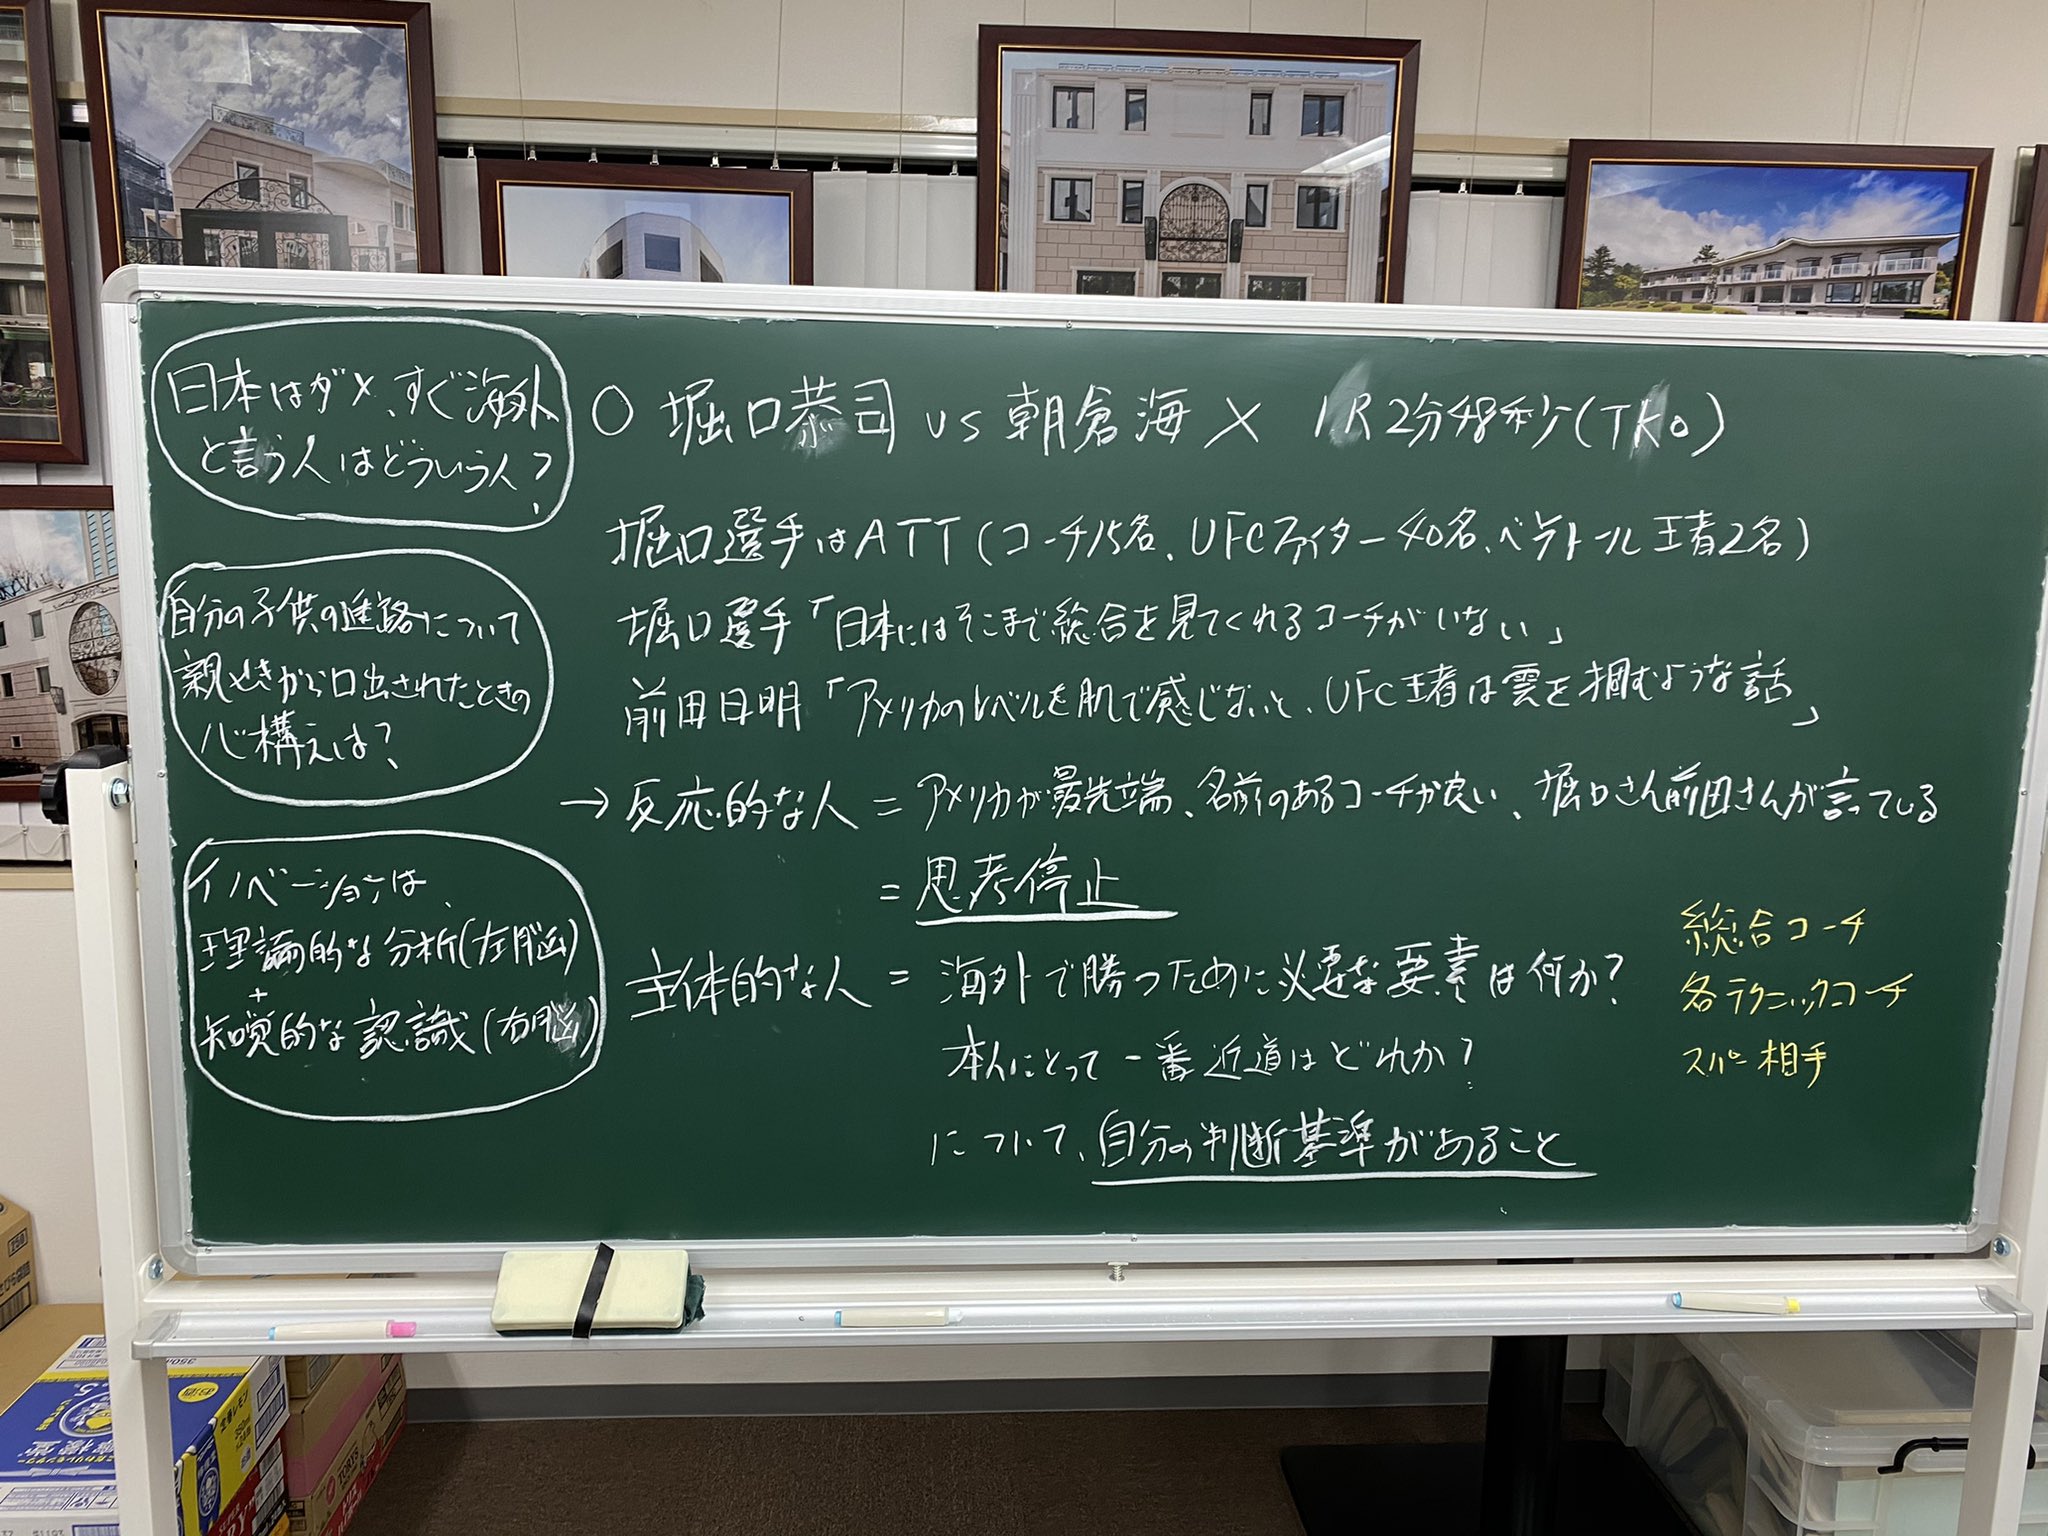 日本はダメ、すぐ海外
と言う人はどういう人?
自分の子供の進路について
親せきから口出されたときの
心構えは?
イノベーションは、
理論的な分析(左脳)
+
知覚的な認識(右脳)
〇 堀口恭司 vs 朝倉海 × 1R 2分48秒(TKO)
堀口選手はATT(コーチ15名、UFCファイター40名、ベラトール王者2名)
堀口選手「日本にはそこまで総合を見てくれるコーチがいない」
前田日明「アメリカのレベルを肌で感じないと、UFC王者は雲を掴むような話」
→反応的な人 = アメリカが最先端、名前のあるコーチが良い、堀口さん前田さんが言っている
= 思考停止
主体的な人 = 海外で勝つために必要な要素は何か?
本人にとって一番近道はどれか?
について、自分の判断基準があること
総合コーチ
各テクニックコーチ
スパー相手
350ml
TORYS